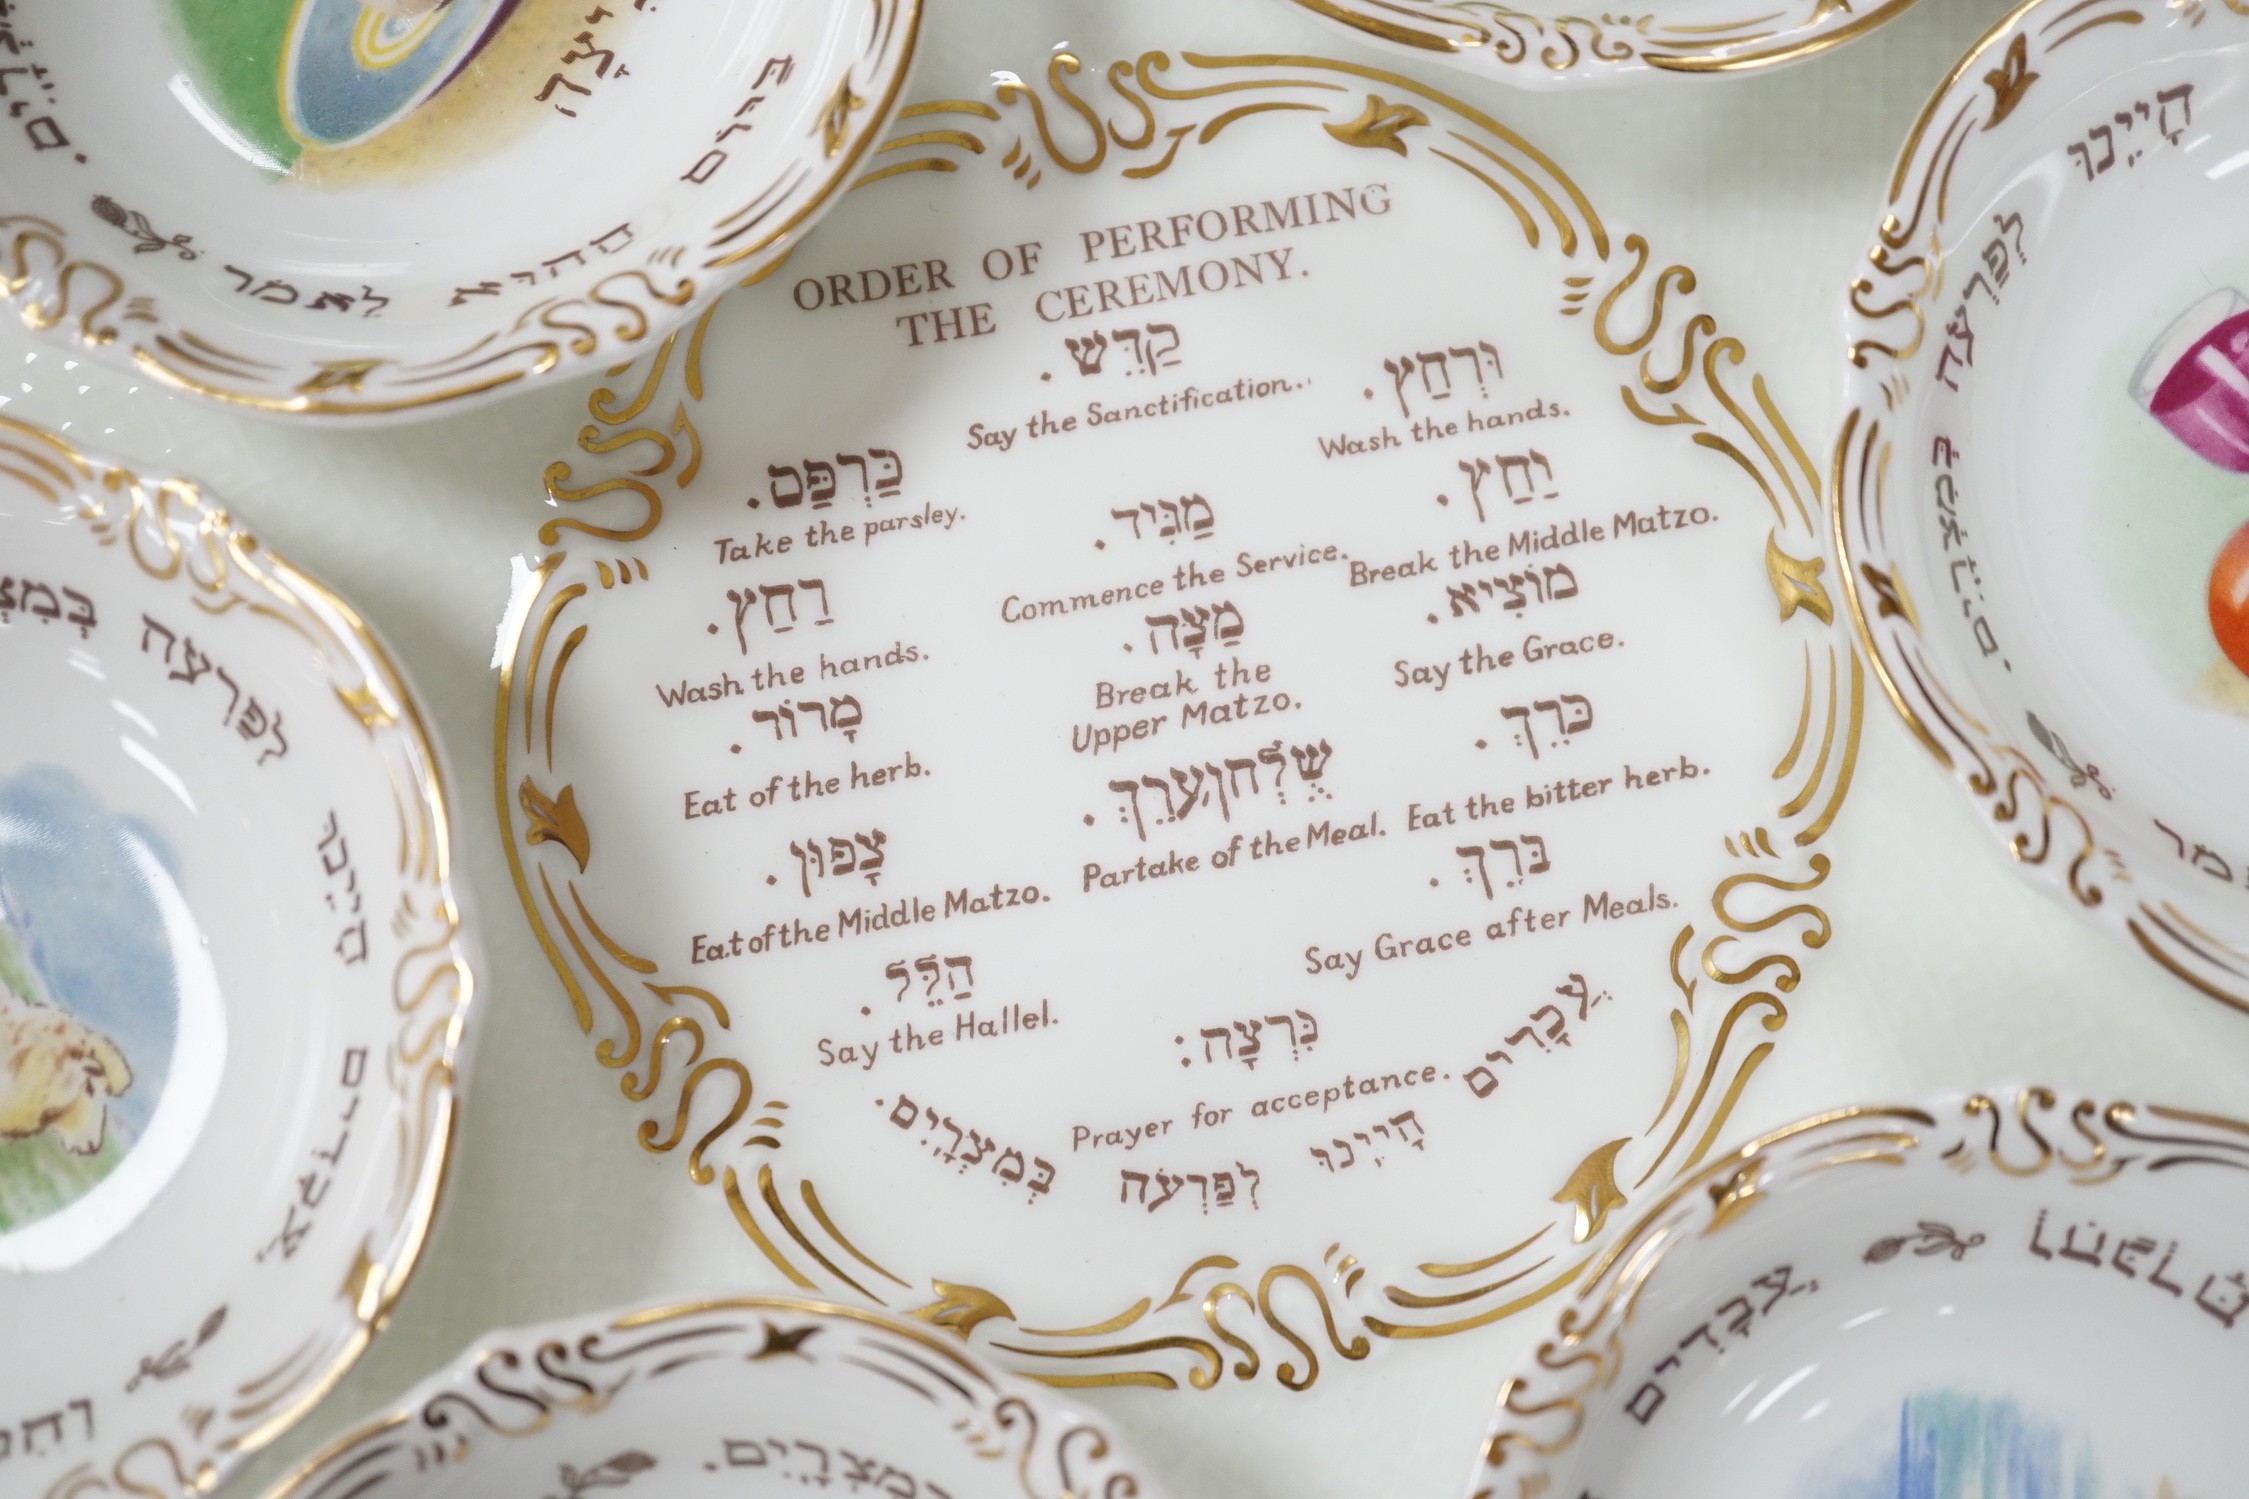 ORDER OF PERFORMING
THE CEREMONY.
קַדֵּשׁ.
Say the Sanctification.
וּרְחַץ.
Wash the hands.
כַּרְפַּס.
Take the parsley.
מַגִּיד.
Commence the Service.
יַחַץ.
Break the Middle Matzo.
רַחַץ.
Wash the hands.
מַצָּה.
Break the
Upper Matzo.
מוֹצִיא.
Say the Grace.
מָרוֹר.
Eat of the herb.
שֻׁלְחָן עֹרֵךְ.
Partake of the Meal.
כֹּרֵךְ.
Eat the bitter herb.
צָפוּן.
Eat of the Middle Matzo.
בֹּרֵךְ.
Say Grace after Meals.
הַלֵּל.
Say the Hallel.
נִרְצָה:
Prayer for acceptance.
עֲבָדִים הָיִינוּ לְפַרְעֹה בְּמִצְרָיִם.
הָיִינוּ לְפַרְעֹה בְּמִצְרָיִם.
ביום ההוא לאמר
עבדים היינו לפרעה
עֲבָדִים
במצרים.